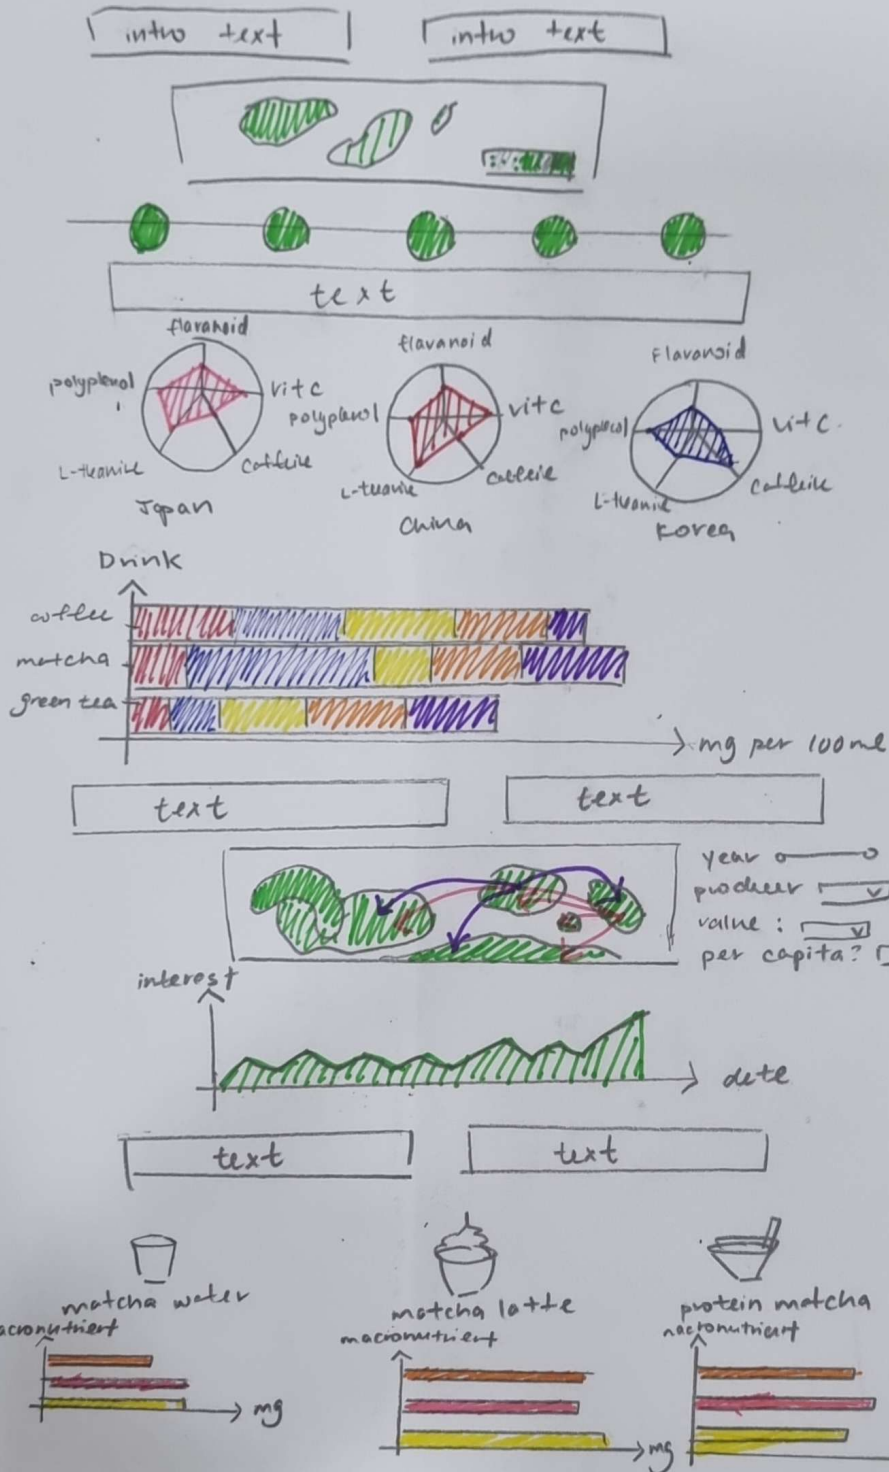 intro text
intro text
text
flavanoid
polyplenol
vit c
L-theanine
caffeine
Japan
flavanoid
polyplenol
vit c
L-tuanine
caffeine
China
Flavonoid
polyplenol
vit c
L-tuanine
caffeine
Korea
Drink
coffee
matcha
green tea
mg per 100ml
text
text
year
producer
value :
per capita?
interest
date
text
text
matcha water
acronutrient
mg
matcha latte
macronutrient
mg
protein matcha
macronutrient